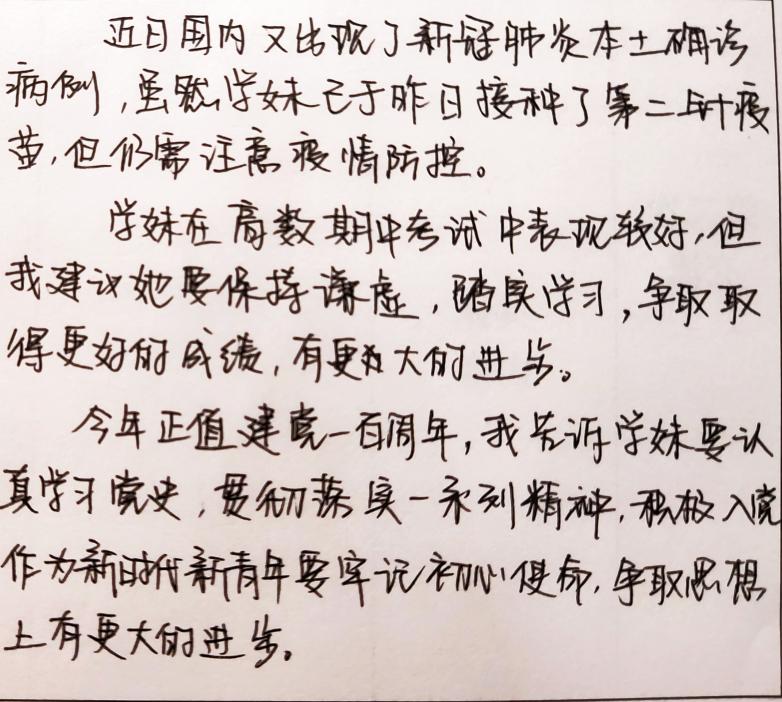 近日国内又出现了新冠肺炎本土确诊
病例，虽然学妹已于昨日接种了第二针疫
苗，但仍需注意疫情防控。
学妹在高数期中考试中表现较好，但
我建议她要保持谦虚，踏实学习，争取取
得更好的成绩，有更大的进步。
今年正值建党一百周年，我告诉学妹要认
真学习党史，贯彻落实一系列精神，积极入党
作为新时代新青年要牢记初心使命，争取思想
上有更大的进步。